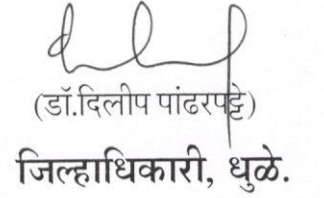 (डॉ.दिलीप पांढरपट्टे)
जिल्हाधिकारी, धुळे.